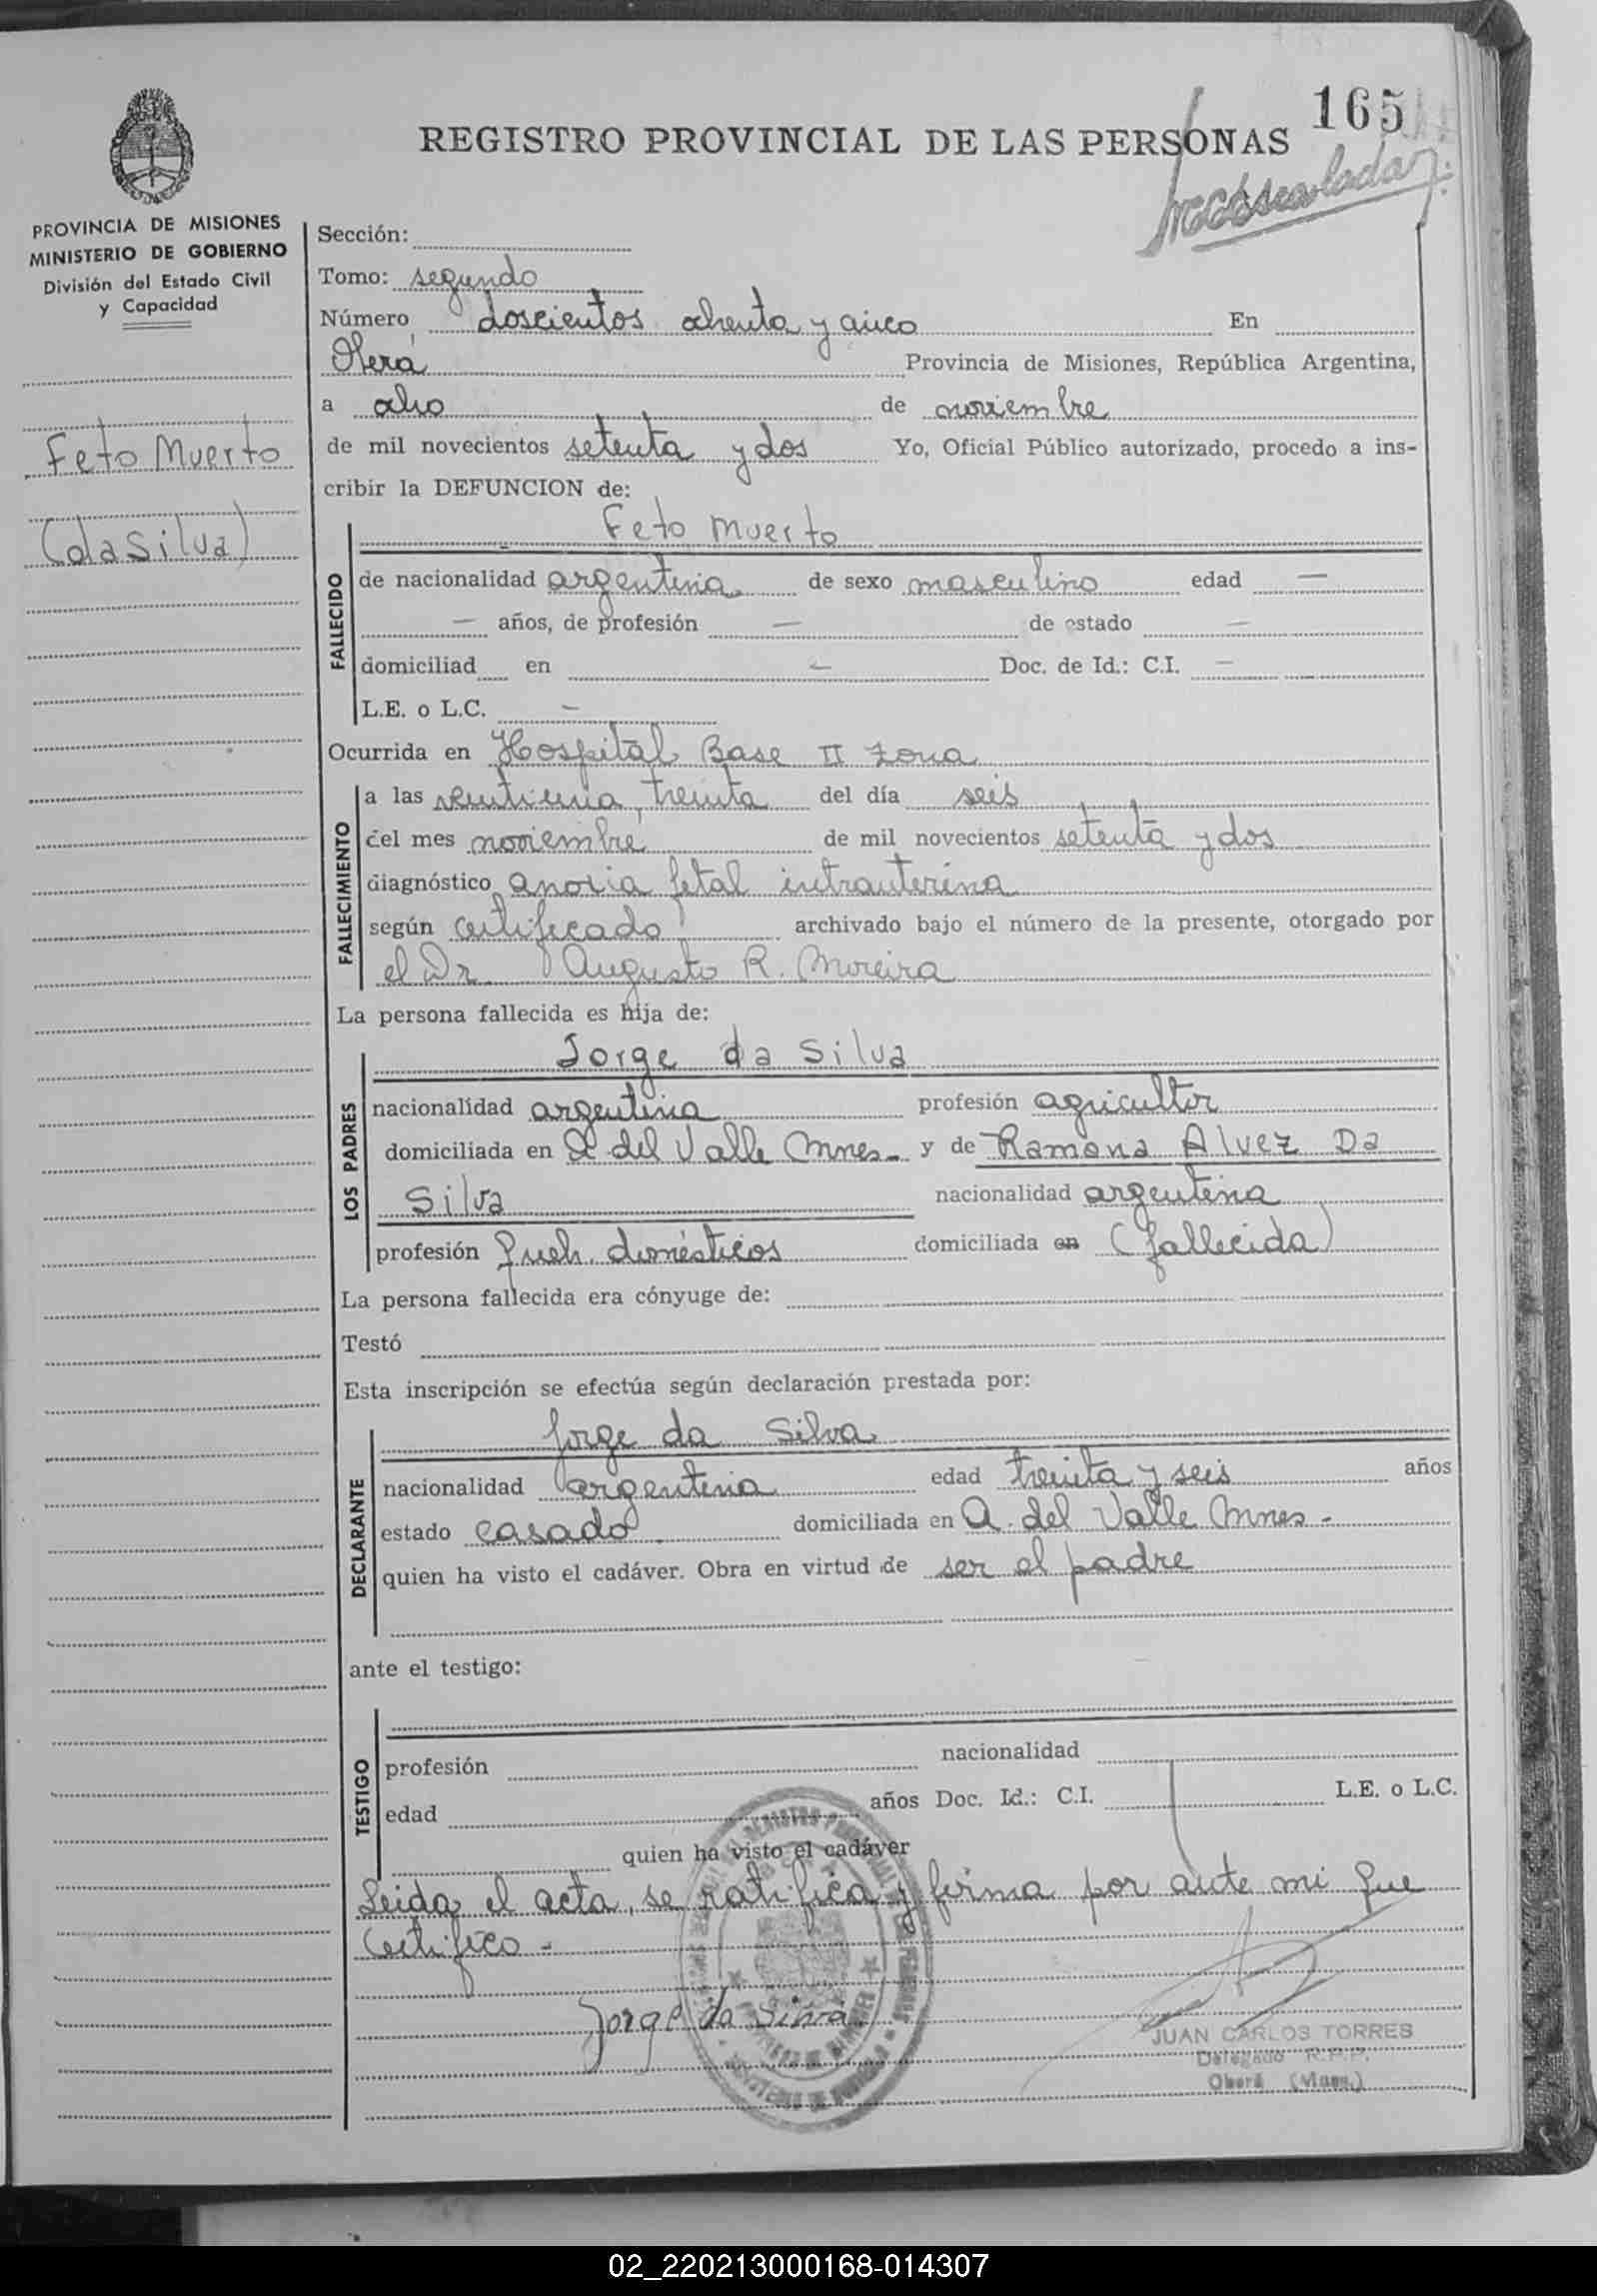 165
REGISTRO PROVINCIAL DE LAS PERSONAS
PROVINCIA DE MISIONES
MINISTERIO DE GOBIERNO
División del Estado Civil
y Capacidad
Feto Muerto
(da Silva)
Sección:
Tomo: segundo
Número doscientos ochenta y cinco En
Oberá Provincia de Misiones, República Argentina,
a ocho de noviembre
de mil novecientos setenta y dos Yo, Oficial Público autorizado, procedo a ins-
cribir la DEFUNCION de:
FALLECIDO
Feto Muerto
de nacionalidad argentina de sexo masculino edad —
— años, de profesión — de estado —
domiciliad en — Doc. de Id.: C.I. —
L.E. o L.C. —
Ocurrida en Hospital Base II Zona
FALLECIMIENTO
a las veintiuna, treinta del día seis
del mes noviembre de mil novecientos setenta y dos
diagnóstico anoxia fetal intrauterina
según certificado archivado bajo el número de la presente, otorgado por
el Dr. Augusto R. Moreira
La persona fallecida es hija de:
LOS PADRES
Jorge da Silva
nacionalidad argentina profesión agricultor
domiciliada en A del Valle Mnes- y de Ramona Alvez Da
Silva nacionalidad argentina
profesión Queh. domésticos domiciliada en (fallecida)
La persona fallecida era cónyuge de:
Testó
Esta inscripción se efectúa según declaración prestada por:
DECLARANTE
Jorge da Silva
nacionalidad argentina edad treinta y seis años
estado casado domiciliada en A. del Valle Mnes-
quien ha visto el cadáver. Obra en virtud de ser el padre
ante el testigo:
TESTIGO
profesión nacionalidad
edad años Doc. Id.: C.I. L.E. o L.C.
quien ha visto el cadáver
Leida el acta, se ratifica y firma por ante mi que
Certifico -
Jorge da Silva
JUAN CARLOS TORRES
Delegado R.P.P.
Oberá (Mnes.)
02_220213000168-014307